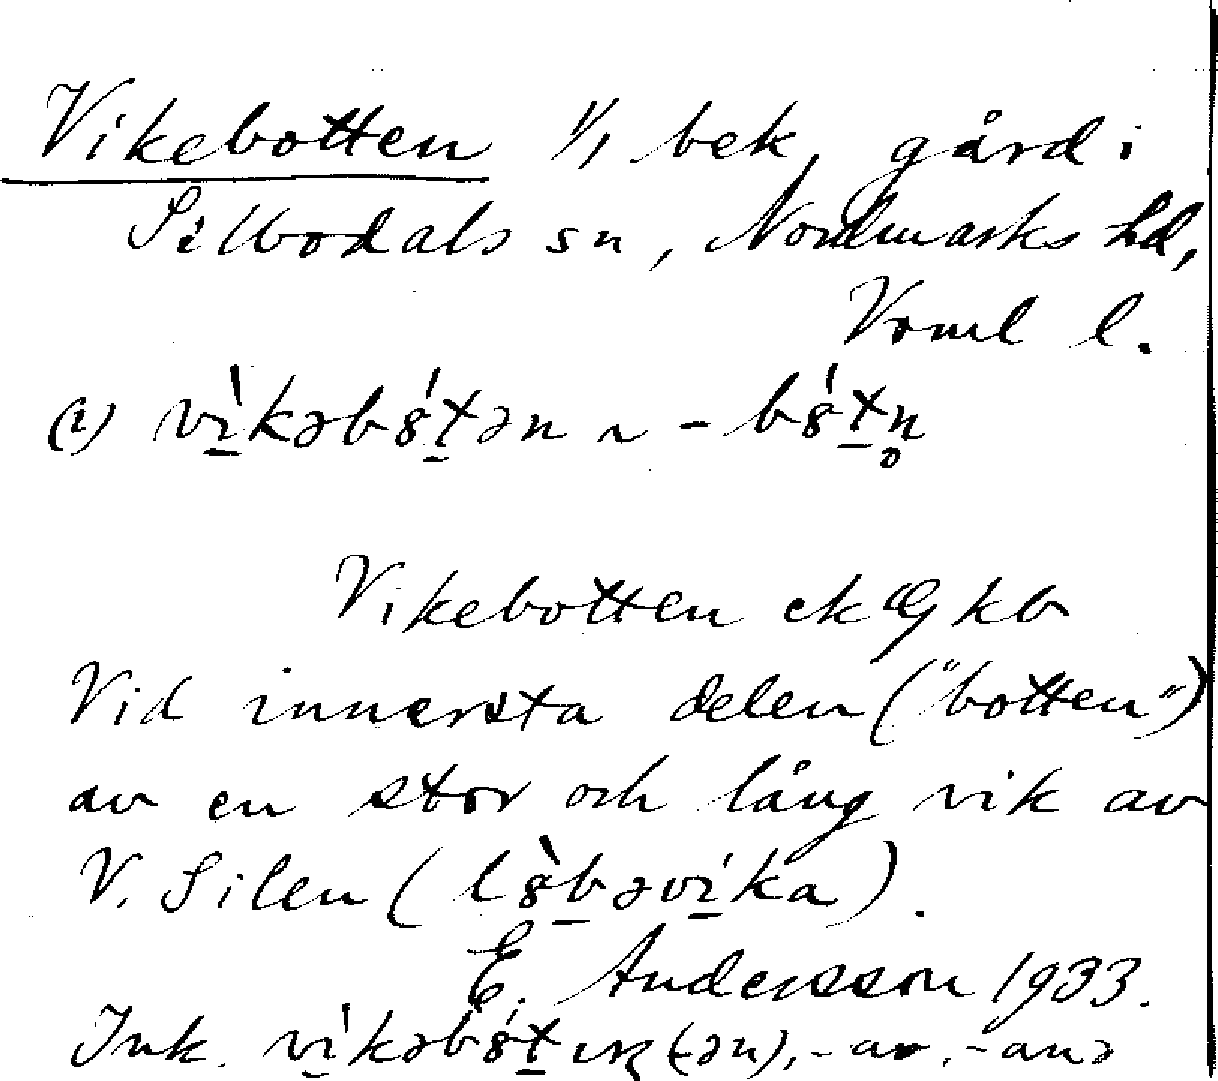 Vikebotten 1/1 bek, gård i
Silbodals sn, Nordmarks hd,
Vrml l.
(i) vìkəbótən ~ -bótn̥
Vikebotten ek Æg kb
Vid innersta delen ("botten")
av en stor och lång vik av
V. Silen (l8̀bəvíka).
E. Andersson 1933.
Ink. vìkəb8́t (-ən), -ar, -anə